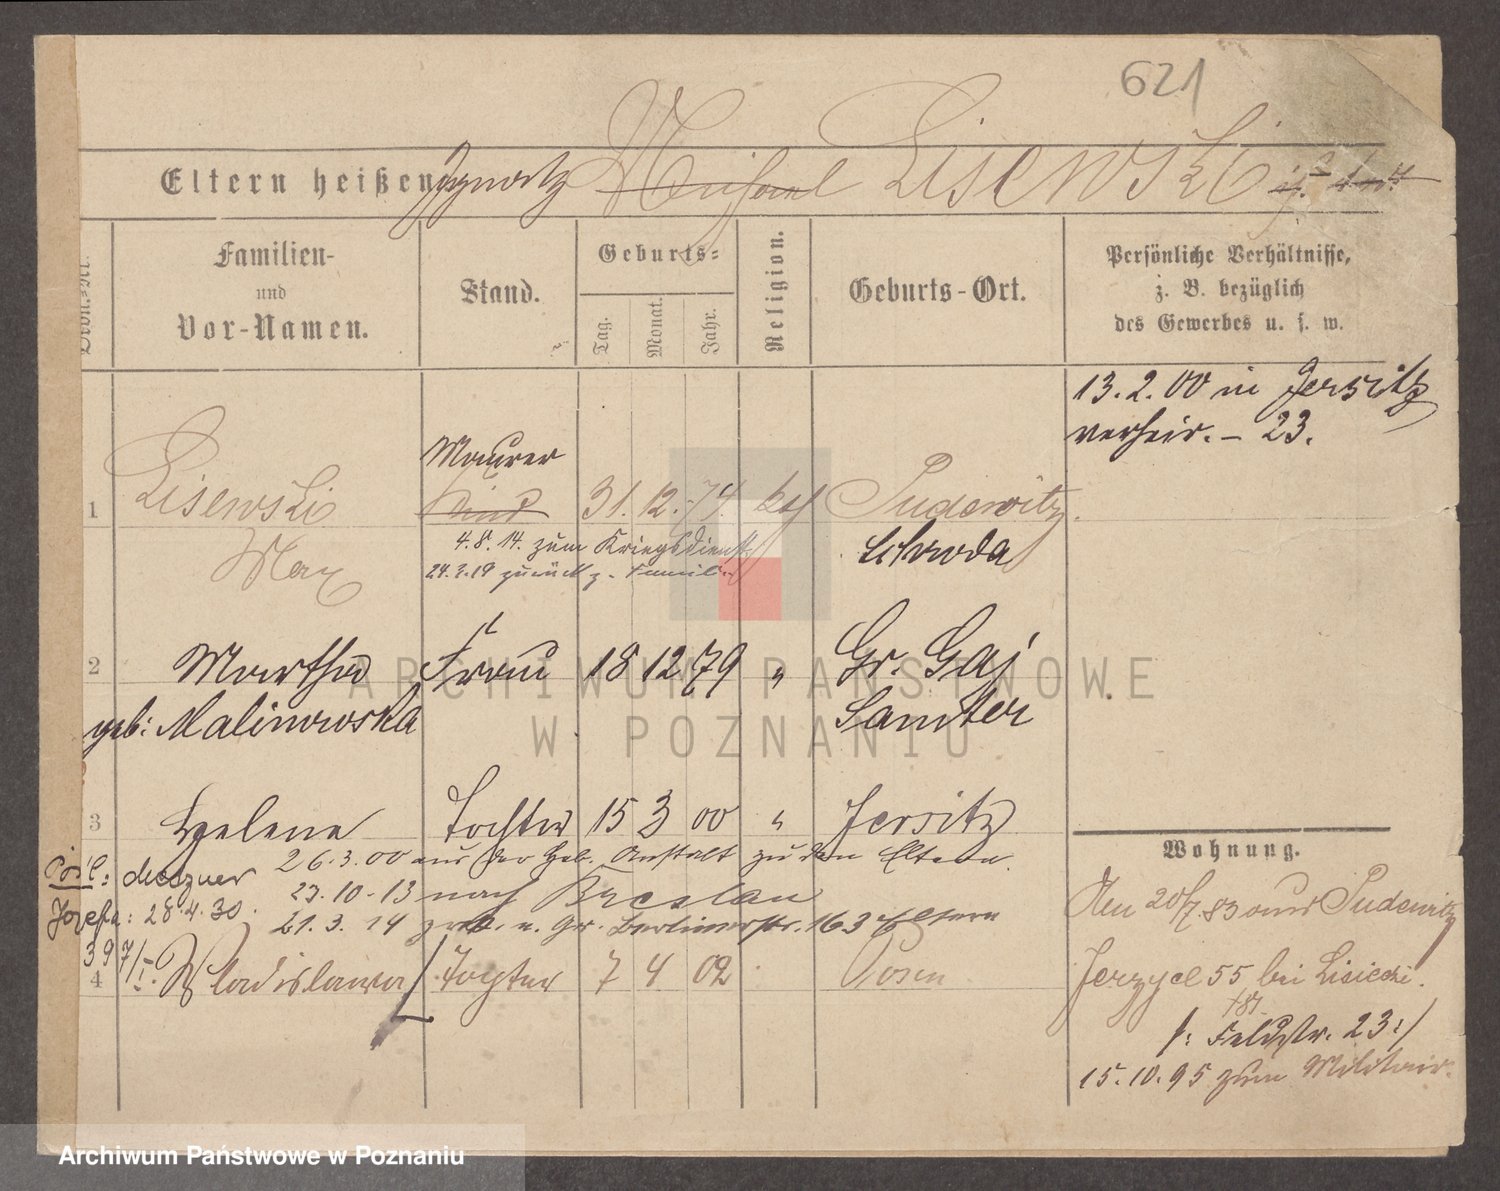 621
Eltern heißen Ignatz Michael Lisewski
Ordn.-Nr.
Familien-
und
Vor-Namen.
Stand.
Geburts-
Tag.
Monat.
Jahr.
Religion.
Geburts-Ort.
Persönliche Verhältnisse,
z. B. bezüglich
des Gewerbes u. s. w.
13.2.00 in Jersitz
verheir. – 23.
Maurer
1 Lisewski Kind 31. 12. 74. kath Pudewitz
Max
4.8.14. zum Kriegsdienst
24.2.19 zurück z. Familie
Schroda
2 Martha Frau 18 12 79 " Gr. Gaj
geb: Malinowska
Samter
3 Helene Tochter 15 3 00 " Jersitz
26.3.00 aus der Geb. Anstalt zu den Eltern.
23.10.13 nach Breslau
21.3.14 zur. n. Gr. Berlinerstr. 163 Eltern
Pósł:
Józefa: 28.4.30.
397/I.
4 Wladislawa Tochter 7 4 02 Posen
Wohnung.
Den 20/7.83 aus Pudewitz
Jerzyce 55 bei Lisiecki.
/: Feldstr. 23 :/
15.10.95 zum Militair.
ARCHIWUM PAŃSTWOWE
W POZNANIU
Archiwum Państwowe w Poznaniu